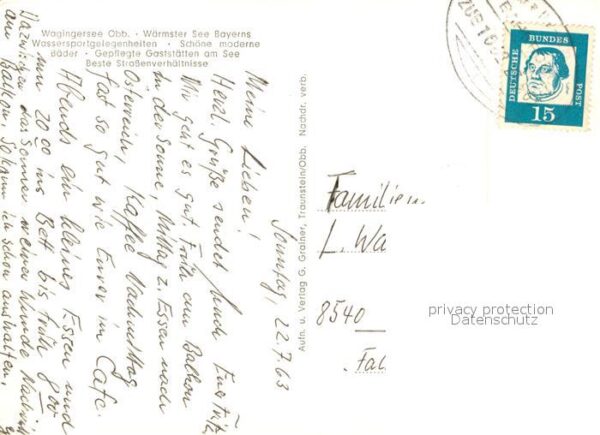 Wagingersee Obb. · Wärmster See Bayerns
Wassersportgelegenheiten · Schöne moderne
Bäder · Gepflegte Gaststätten am See
Beste Straßenverhältnisse
Sonntag, 22.7.63
Meine Lieben!
Herzl. Grüße sendet Euch Euer Fritz
Mir geht es gut, Früh am Balkon
in der Sonne, Mittag z. Essen nach
Österreich, Kaffee Nachmittag
fast so gut wie Euer im Cafe.
Abends ein kleines Essen und
um 20 00 ins Bett bis früh 8 00
Dazwischen das Sonnen meiner Wunde
am Balkon. So kann ich schon aushalten.
Aufn. u. Verlag G. Grainer, Traunstein/Obb. Nachdr. verb.
DEUTSCHE BUNDESPOST
15
Familien
L. Wa
8540
privacy protection
Datenschutz